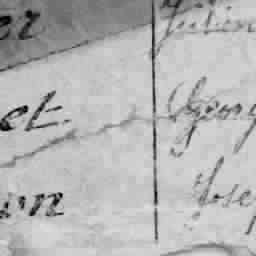 er Julien
et. Georg
on Josep